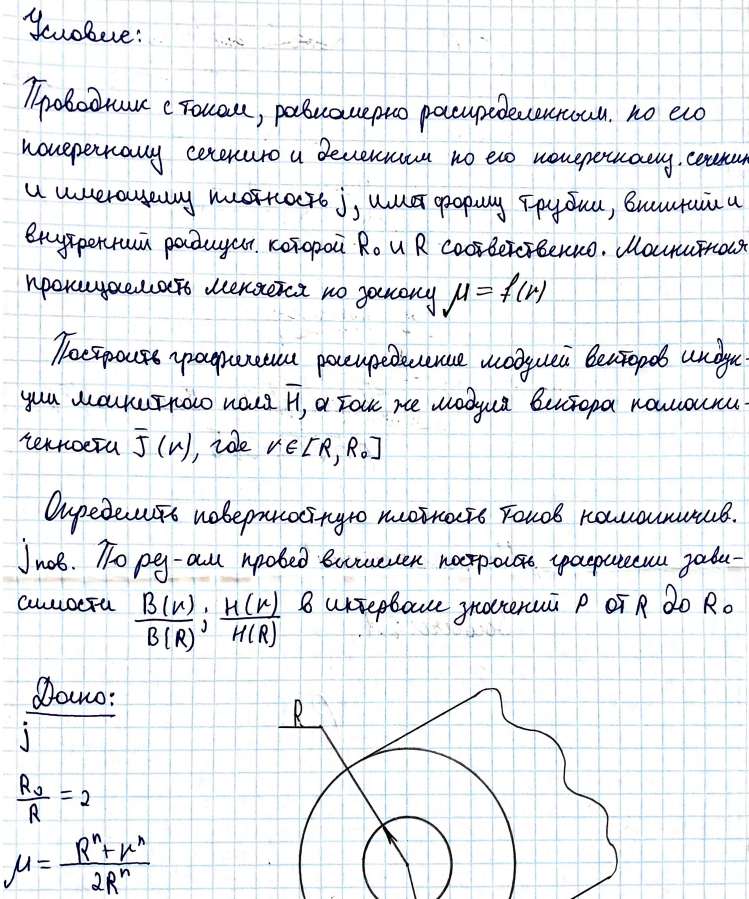 Условие:
Проводник с током, равномерно распределенным. по его
поперечному сечению и деленным по его поперечному. сечению
и имеющему плотность j, имет форму трубки, внешний и
внутренний радиусы. которой R₀ и R соответственно. Магнитная
проницаемость меняется по закону μ = f(r)
Построить графически распределение модулей векторов индук-
ции магнитного поля H̅, а так же модуля вектора намагни-
ченности J̅(r), где r∈[R, R₀]
Определить поверхностную плотность токов намагничив.
jпов. По рез-ам провед вычислен построить графически зави-
симости B(r)/B(R); H(r)/H(R) в интервале значений ρ от R до R₀
Дано:
R
j
R₀/R = 2
μ = (Rⁿ+rⁿ)/2Rⁿ